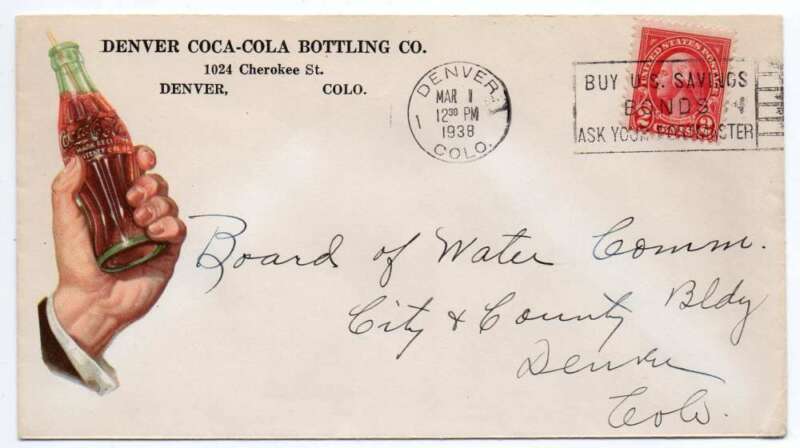 DENVER COCA-COLA BOTTLING CO.
1024 Cherokee St.
DENVER, COLO.
Coca-Cola
DENVER
MAR 1
12 30 PM
1938
COLO.
1
UNITED STATES POSTAGE
2 2
BUY U.S. SAVINGS
BONDS
ASK YOUR POSTMASTER
Board of Water Comm.
City & County Bldy
Denver
Colo.